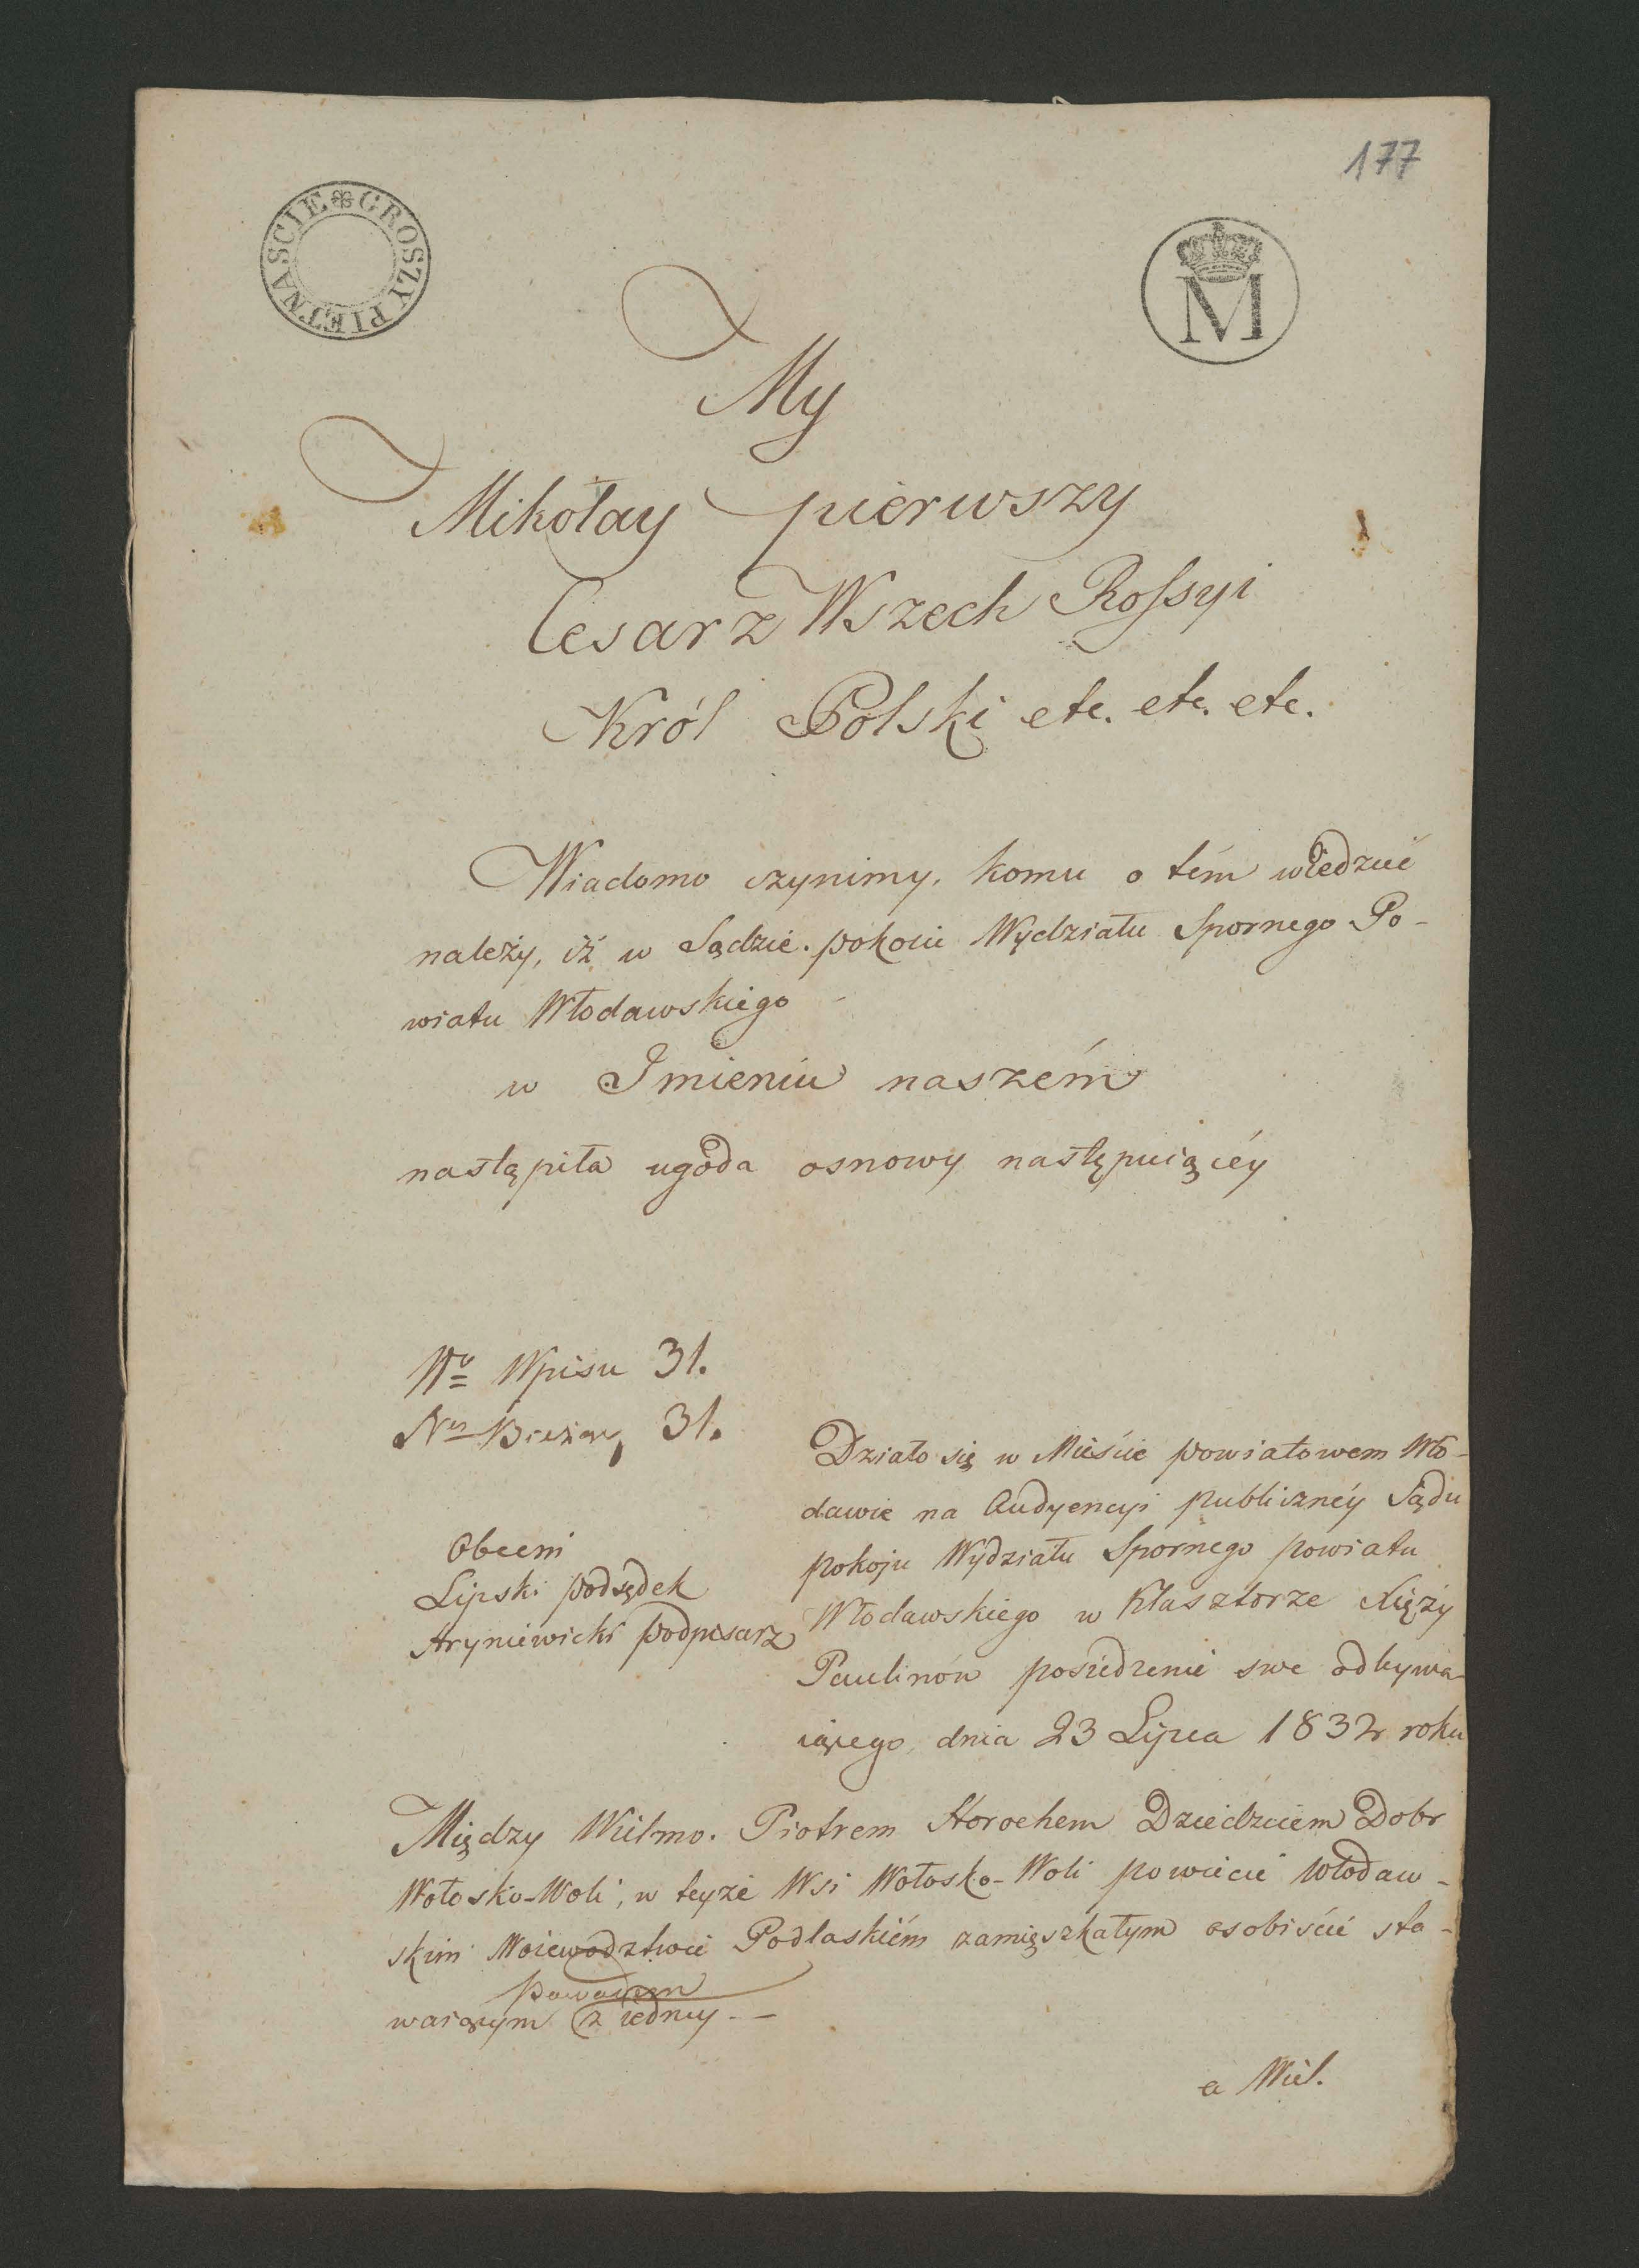 177
GROSZY PIETNASCIE
M
My
Mikołay pierwszy
Cesarz Wszech Rossyi
Król Polski etc. etc. etc.
Wiadomo czynimy, komu o tém wiedzieć
należy, iż w Sądzie pokoiu Wydziału Spornego Po-
wiatu Włodawskiego
w Imieniu naszém
nastąpiła ugoda osnowy następuiącéy
Nr Wpisu 31.
Nr Bieżący 31.
Obecni
Lipski podsędek
Hryniewicki podpisarz
Działo się w Mieście powiatowem Wło-
dawie na Audyencyi publicznéy Sądu
pokoju Wydziału Spornego powiatu
Włodawskiego w Klasztorze Xięży
Paulinów posiedzenie swe odbywa-
iącego, dnia 23 Lipca 1832 roku
Między Wielmo. Piotrem Horochem Dziedzicem Dobr
Wołosko-Woli, w teyże Wsi Wołosko-Woli powiecie Włodaw-
skim Woiewodztwie Podlaskiém zamięszkałym osobiście sta-
powodem
waiącym z iedney --
a Wiel.